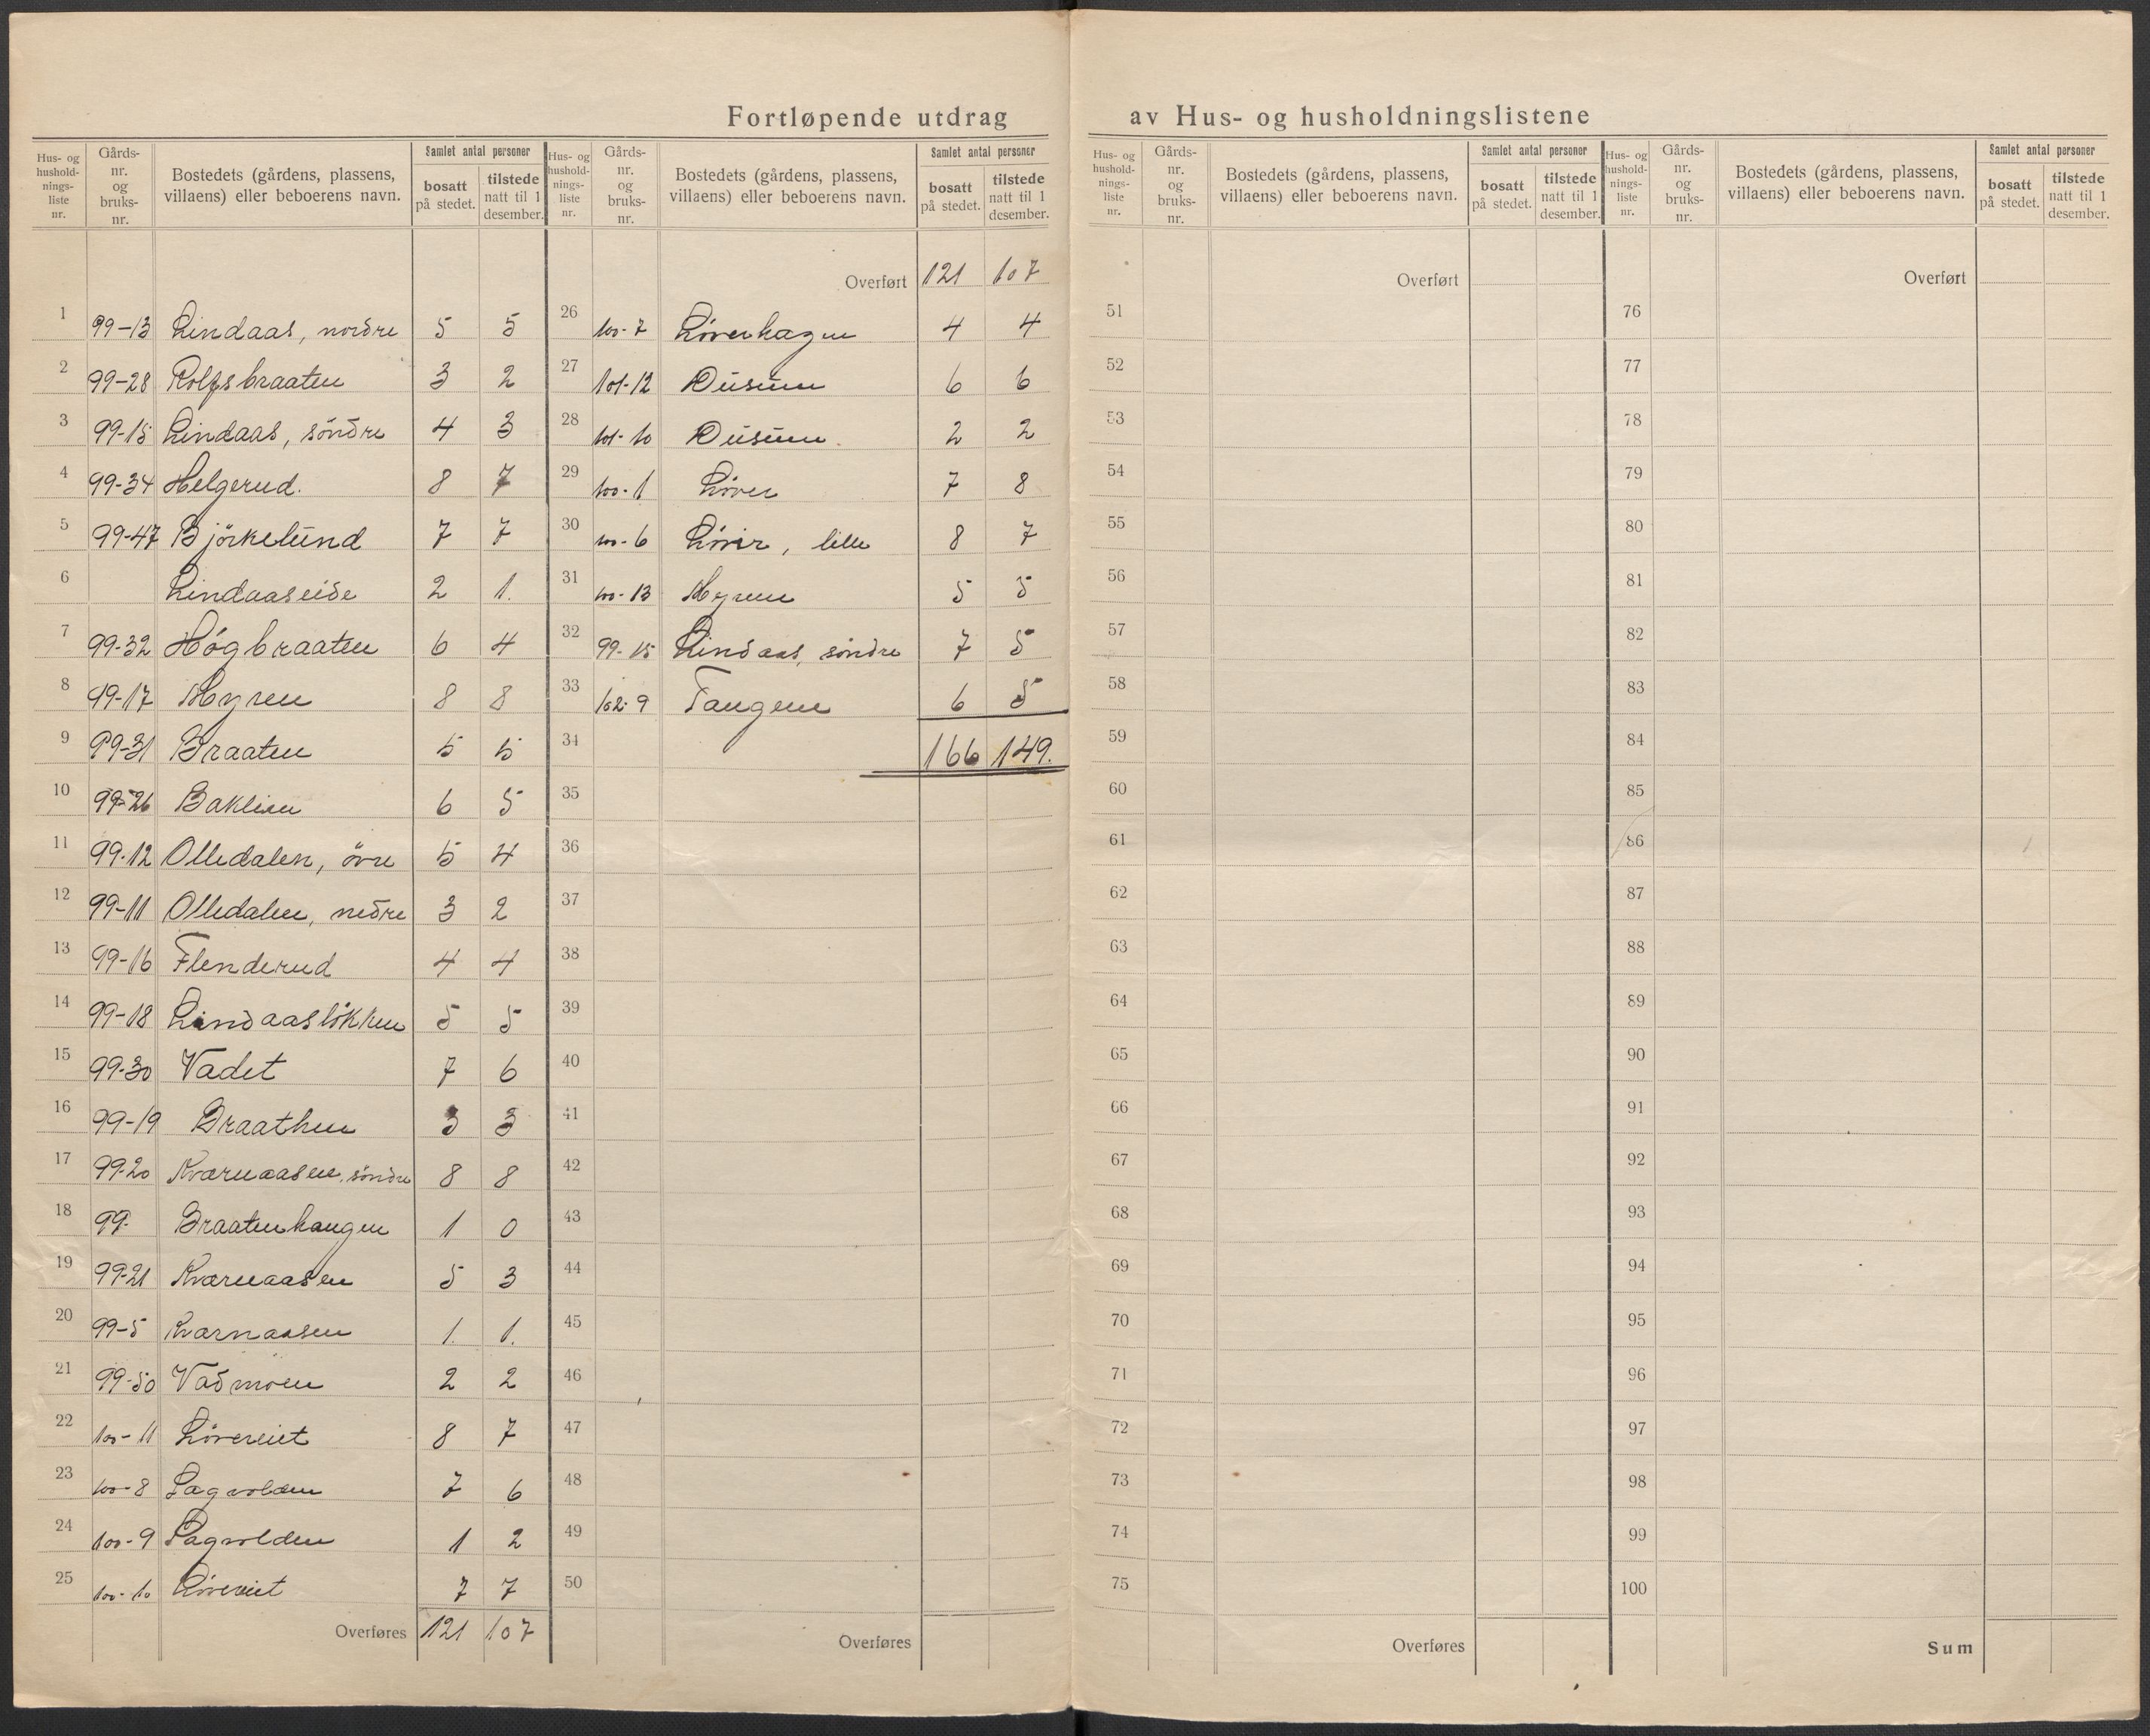 Fortløpende utdrag av Hus- og husholdningslistene
Hus- og hushold-nings-liste nr. Gårds-nr. og bruks-nr. Bostedets (gårdens, plassens, villaens) eller beboerens navn. Samlet antal personer bosatt på stedet. tilstede natt til 1 desember.
1 99-13 Lindaas, nordre 5 5
2 99-28 Rolfsbraaten 3 2
3 99-15 Lindaas, söndre 4 3
4 99-34 Helgerud. 8 7
5 99-47 Björkelund 7 7
6 Lindaaseide 2 1.
7 99-32 Høgbraaten 6 4
8 99-17 Myren 8 8
9 99-31 Braaten 5 5
10 99-26 Baklien 6 5
11 99-12 Olledalen, övre 5 4
12 99-11 Olledalen, nedre 3 2
13 99-16 Flenderud 4 4
14 99-18 Lindaasløkken 5 5
15 99-30 Vadet 7 6
16 99-19 Braathen 3 3
17 99-20 Kværnaasen, söndre 8 8
18 99- Braatenhaugen 1 0
19 99-21 Kværnaasen 5 3
20 99-5 Kvarnaasen 1. 1.
21 99-50 Vadmoen 2 2
22 100-11 Løvereiet 8 7
23 100-8 Lagvolden 7 6
24 100-9 Lagvolden 1 2
25 100-10 Løvereiet 7 7
Overføres 121 107
Hus- og hushold-nings-liste nr. Gårds-nr. og bruks-nr. Bostedets (gårdens, plassens, villaens) eller beboerens navn. Samlet antal personer bosatt på stedet. tilstede natt til 1 desember.
Overført 121 107
26 100-7 Løverhagen 4 4
27 101-12 Dusum 6 6
28 101-10 Dusum. 2 2
29 100-1 Løver 7 8
30 100-6 Løver, lille 8 7
31 100-13 Myren 5 5
32 99-15 Lindaas, söndre 7 5
33 102-9 Tangen 6 5
34 166 149.
35
36
37
38
39
40
41
42
43
44
45
46
47
48
49
50
Overføres
Hus- og hushold-nings-liste nr. Gårds-nr. og bruks-nr. Bostedets (gårdens, plassens, villaens) eller beboerens navn. Samlet antal personer bosatt på stedet. tilstede natt til 1 desember.
Overført
51
52
53
54
55
56
57
58
59
60
61
62
63
64
65
66
67
68
69
70
71
72
73
74
75
Overføres
Hus- og hushold-nings-liste nr. Gårds-nr. og bruks-nr. Bostedets (gårdens, plassens, villaens) eller beboerens navn. Samlet antal personer bosatt på stedet. tilstede natt til 1 desember.
Overført
76
77
78
79
80
81
82
83
84
85
86
87
88
89
90
91
92
93
94
95
96
97
98
99
100
Sum